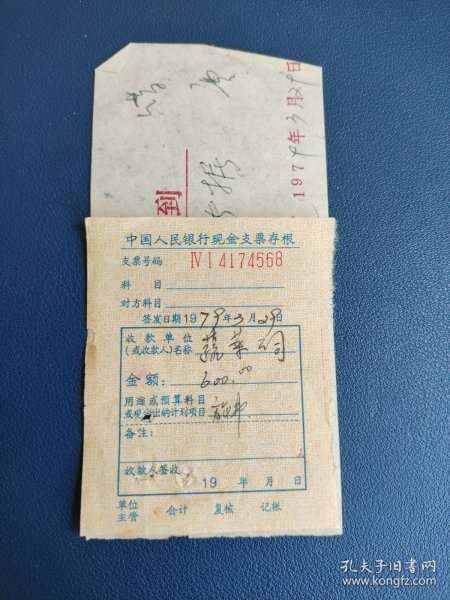 到
1979年3月29日
中国人民银行现金支票存根
支票号码 Ⅳ I 4174568
科目
对方科目
签发日期1979年3月29日
收款单位
(或收款人)名称 蔬菜公司
金额: 600.00
用途或预算科目
或现金出纳计划项目
备注:
收款人签收
19 年 月 日
单位
主管 会计 复核 记帐
孔夫子旧书网
www.kongfz.com